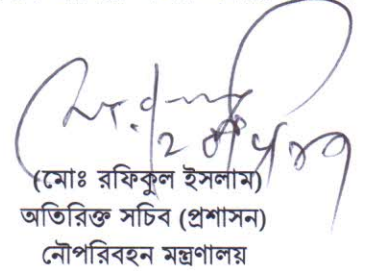 (মোঃ রফিকুল ইসলাম)
অতিরিক্ত সচিব (প্রশাসন)
নৌপরিবহন মন্ত্রণালয়